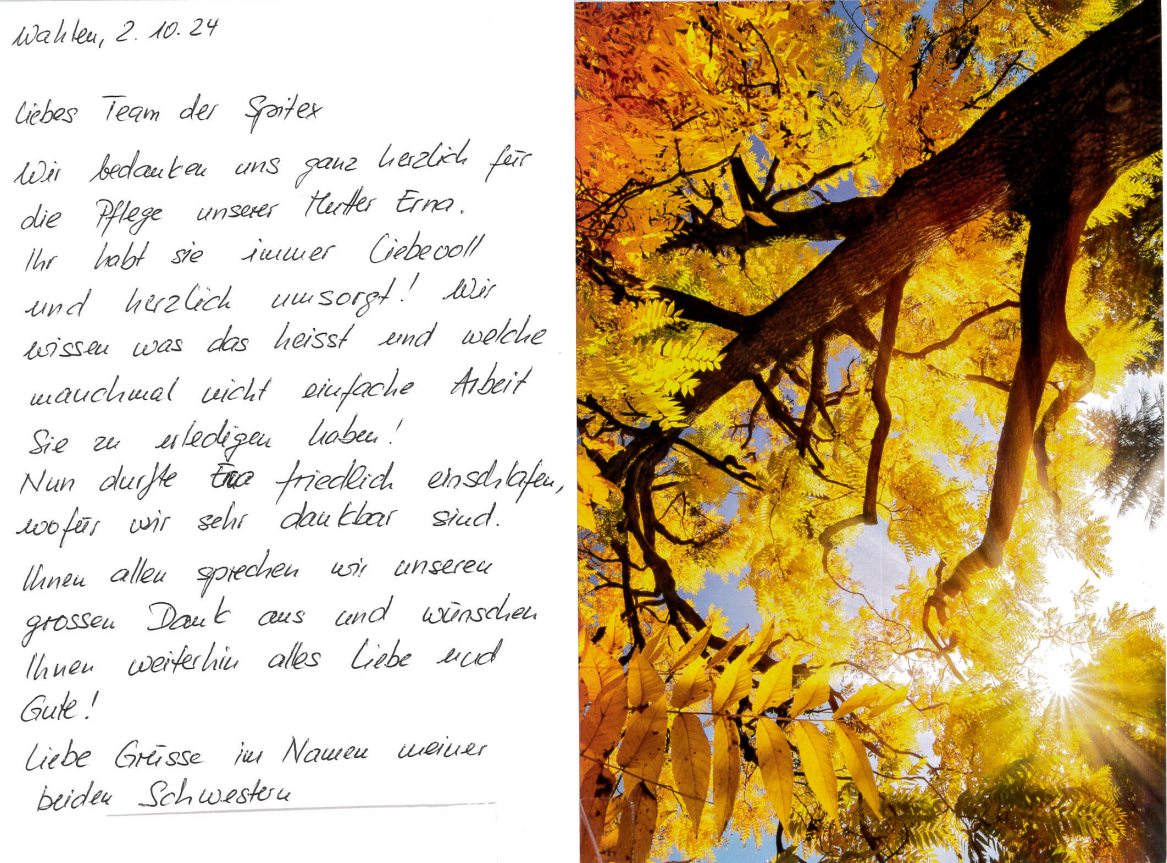 Wahlen, 2. 10. 24
Liebes Team der Spitex
Wir bedanken uns ganz herzlich für
die Pflege unserer Mutter Erna.
Ihr habt sie immer Liebevoll
und herzlich umsorgt! Wir
wissen was das heisst und welche
manchmal nicht einfache Arbeit
Sie zu erledigen haben!
Nun durfte Erna friedlich einschlafen,
wofür wir sehr dankbar sind.
Ihnen allen sprechen wir unseren
grossen Dank aus und wünschen
Ihnen weiterhin alles Liebe und
Gute!
Liebe Grüsse im Namen meiner
beiden Schwestern